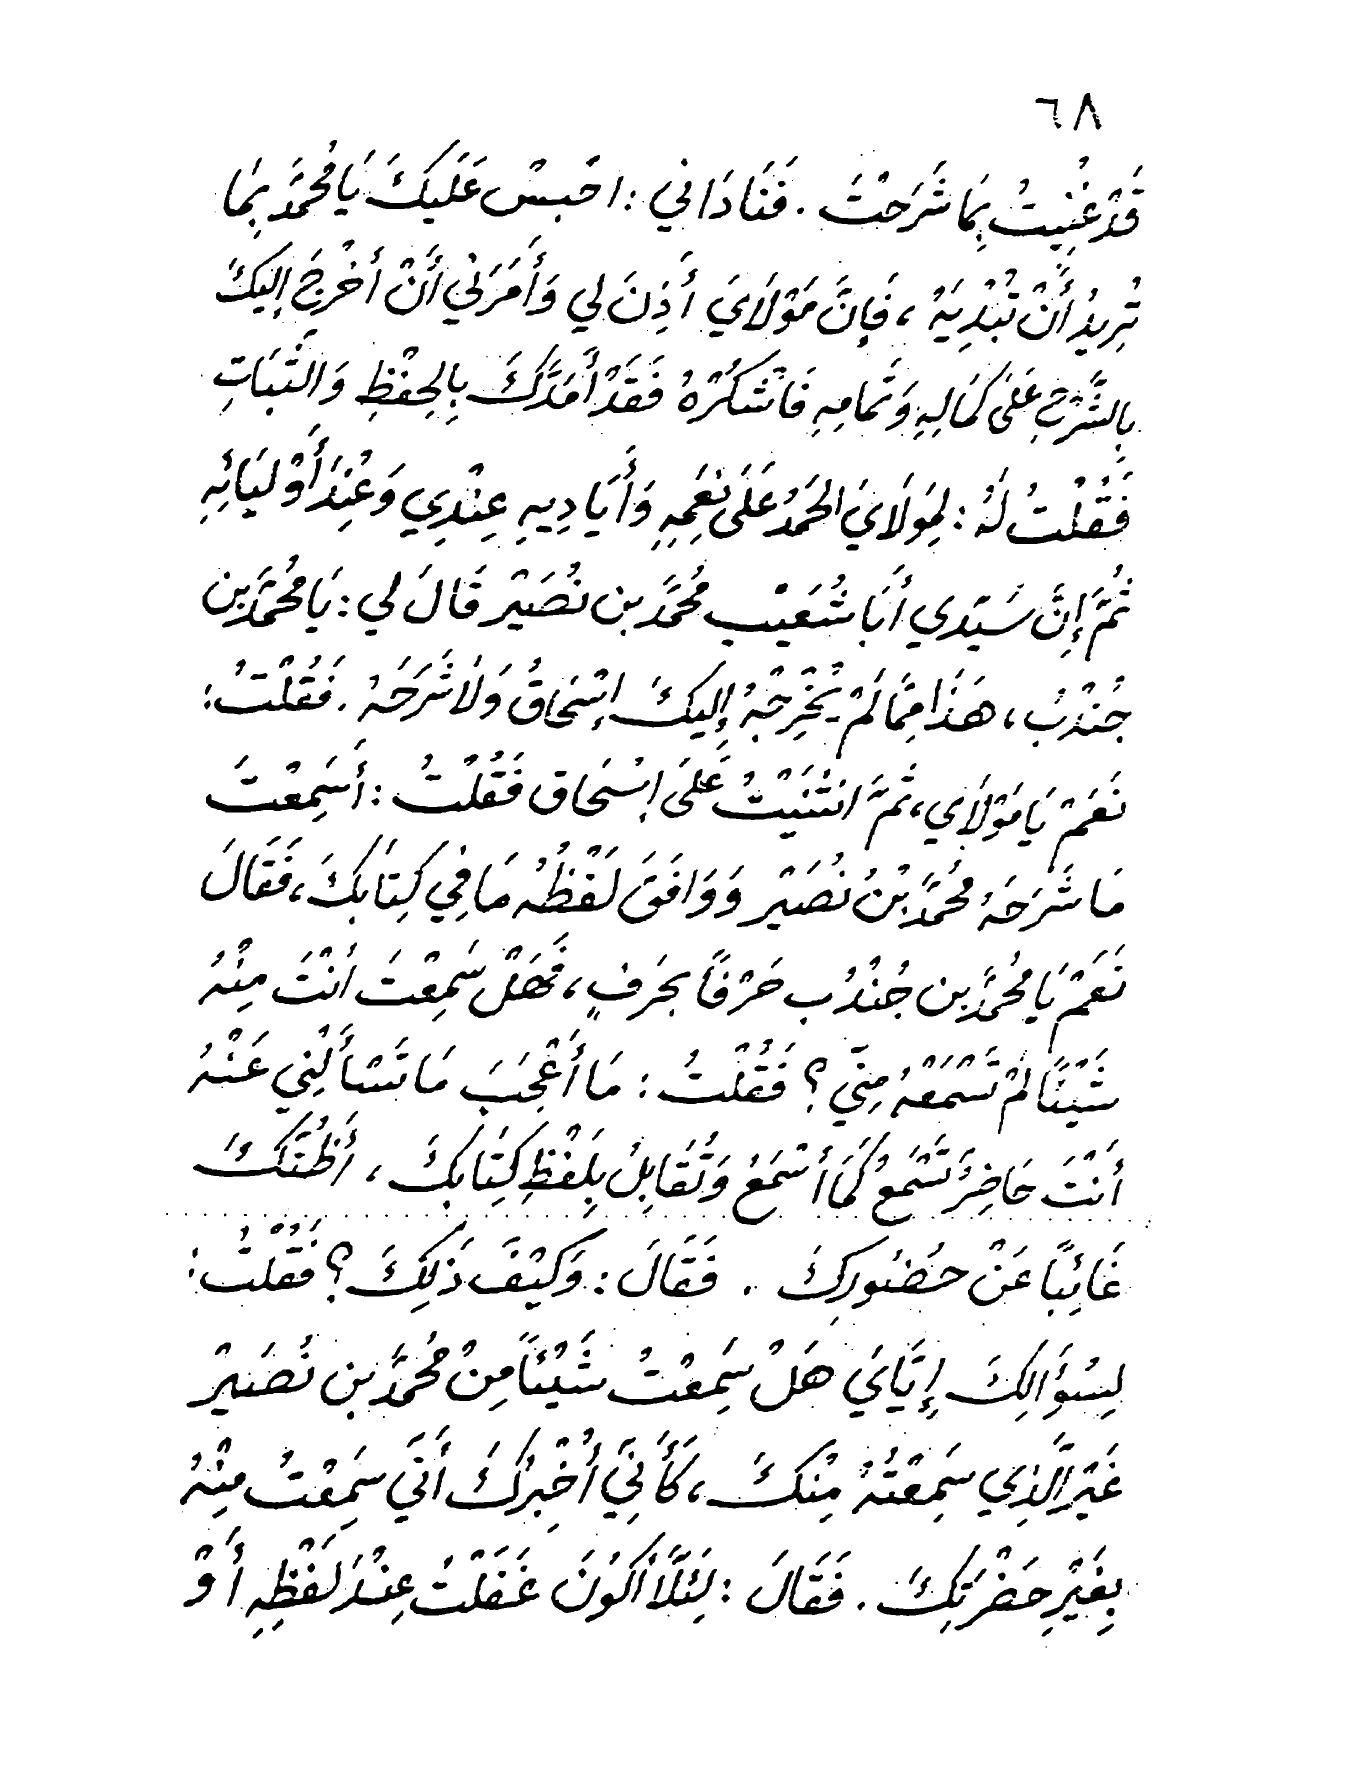 ٦٨
قَدْ عُنِيتُ بِمَا شَرَحْتَ . فَنَادَاني : احْبِسْ عَلَيكَ يَا مُحمَّدُ بِمَا
تُرِيدُ أَنْ تُبْدِيَهُ ، فَإِنَّ مَوْلَايَ أَذِنَ لي وَأَمَرَنْي أَنْ أَخْرِجَ إِليكَ
بالشَّرْحِ عَلَى كَمَالِهِ وَتَمَامِهِ فَاشْكُرْهُ فَقَدْ أَمَدَّكَ بِالحِفْظِ وَالثَّبَاتِ
فَقُلْتُ لَهُ : لِمَولَايَ الحَمْدُ عَلَى نِعَمِهِ وَأَيَادِيهِ عِنْدِي وَعِنْدَ أَوْليَائِهِ
ثُمَّ إِنَّ سَيّدي أَبَا شُعَيْب مُحمَّدَ بن نُصَيْر قَالَ لي : يَا مُحمَّدُ بن
جُنْدُبُ ، هَذَا مِمَّا لَمْ يُخْرِجْهُ إِليكَ إسْحَاقُ وَلَا شَرَحَهُ . فَقُلْتُ :
نَعَمْ يَا مَوْلَاي ، ثُمَّ انْثَنَيْتُ عَلَى إسْحَاق فَقُلْتُ : أَسَمِعْتَ
مَا شَرَحَهُ مُحمَّدُ بْنُ نُصَيْر وَوَافَقَ لَفْظُهُ مَا فِي كِتَابِكَ ، فَقَالَ
نَعَمْ يَا مُحمَّدُ بن جُنْدُب حَرْفًا بحَرفٍ ، فَهَلْ سَمِعْتَ أَنْتَ مِنْهُ
شَيْئًا لمْ تَسْمَعْهُ مِنّي ؟ فَقُلْتُ : مَا أَعْجَبَ مَا تَسْأَلُني عَنْهُ
أَنْتَ حَاضِرٌ تَسْمَعُ كَمَا أَسْمَعُ وَتُقَابِلُ بِلَفْظِ كِتَابِكَ ، أَظُنُّكَ
غَائِبًا عَنْ حُضُورِكَ . فَقَالَ : وَكَيْفَ ذَلِكَ ؟ فَقُلْتُ :
لِسُؤَالِكَ إِيَّايَ هَلْ سَمِعْتُ شَيْئًا مِنْ مُحمَّدِ بن نُصَيْرْ
غَيْرَ الَّذِي سَمِعْتَهُ مِنْكَ ، كَأَنّي أُخْبِرُكَ أَنّي سَمِعْتُ مِنْهُ
بِغَيْرِ حَضْرَتِكَ . فَقَالَ : لِئَلَّا أَكُونَ غَفَلْتُ عِنْدَ لَفْظِهِ أَوْ